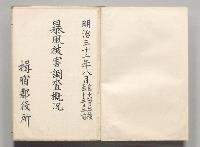 明治三十二年八月
暴風被害調査概況
揖宿郡役所